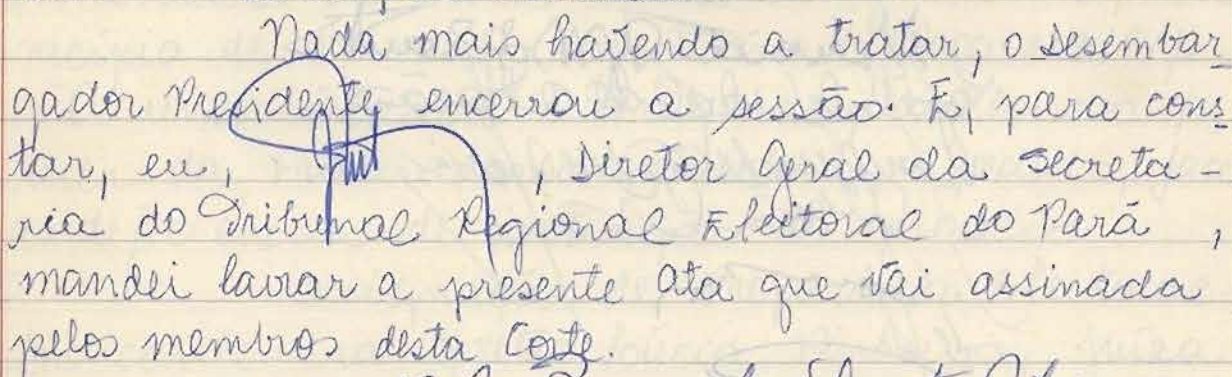 Nada mais havendo a tratar, o Desembar
gador Presidente encerrou a sessão. E, para cons
tar, eu, , Diretor Geral da Secreta-
ria do Tribunal Regional Eleitoral do Pará,
mandei lavrar a presente Ata que vai assinada
pelos membros desta Corte.